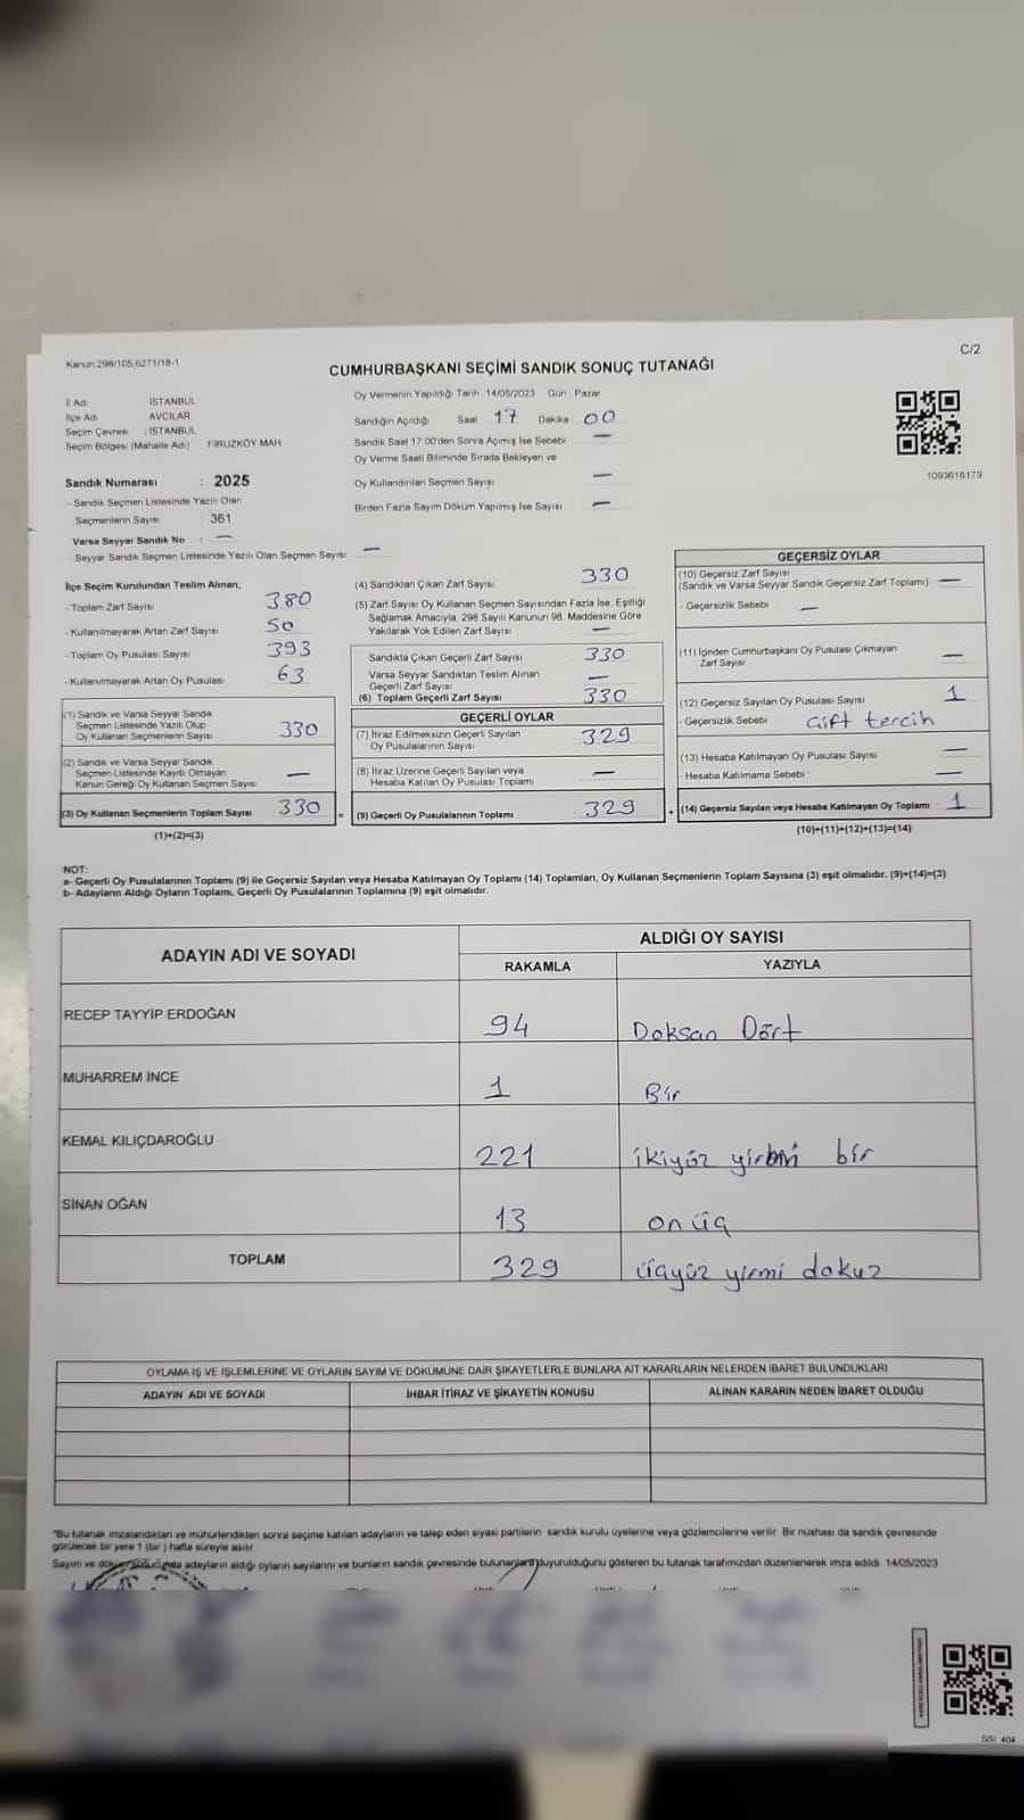 Kanun:298/105,6271/18-1
C/2
CUMHURBAŞKANI SEÇİMİ SANDIK SONUÇ TUTANAĞI
İl Adı : İSTANBUL
İlçe Adı : AVCILAR
Seçim Çevresi : İSTANBUL
Seçim Bölgesi (Mahalle Adı) : FİRUZKÖY MAH
Sandık Numarası : 2025
- Sandık Seçmen Listesinde Yazılı Olan
Seçmenlerin Sayısı : 361
Varsa Seyyar Sandık No : —
- Seyyar Sandık Seçmen Listesinde Yazılı Olan Seçmen Sayısı: —
Oy Vermenin Yapıldığı Tarih : 14/05/2023 Gün : Pazar
Sandığın Açıldığı Saat 17 Dakika 00
Sandık Saat 17.00'den Sonra Açılmış İse Sebebi : —
Oy Verme Saati Bitiminde Sırada Bekleyen ve
Oy Kullandırılan Seçmen Sayısı : —
Birden Fazla Sayım Döküm Yapılmış İse Sayısı : —
1093616179
İlçe Seçim Kurulundan Teslim Alınan;
- Toplam Zarf Sayısı 380
- Kullanılmayarak Artan Zarf Sayısı 50
- Toplam Oy Pusulası Sayısı 393
- Kullanılmayarak Artan Oy Pusulası 63
(1) Sandık ve Varsa Seyyar Sandık
Seçmen Listesinde Yazılı Olup
Oy Kullanan Seçmenlerin Sayısı 330
(2) Sandık ve Varsa Seyyar Sandık
Seçmen Listesinde Kayıtlı Olmayan
Kanun Gereği Oy Kullanan Seçmen Sayısı —
(3) Oy Kullanan Seçmenlerin Toplam Sayısı 330 =
(1)+(2)=(3)
(4) Sandıktan Çıkan Zarf Sayısı 330
(5) Zarf Sayısı Oy Kullanan Seçmen Sayısından Fazla İse; Eşitliği
Sağlamak Amacıyla, 298 Sayılı Kanunun 98. Maddesine Göre
Yakılarak Yok Edilen Zarf Sayısı —
Sandıkta Çıkan Geçerli Zarf Sayısı 330
Varsa Seyyar Sandıktan Teslim Alınan
Geçerli Zarf Sayısı —
(6) Toplam Geçerli Zarf Sayısı 330
GEÇERLİ OYLAR
(7) İtiraz Edilmeksizin Geçerli Sayılan
Oy Pusulalarının Sayısı 329
(8) İtiraz Üzerine Geçerli Sayılan veya
Hesaba Katılan Oy Pusulası Toplamı —
(9) Geçerli Oy Pusulalarının Toplamı 329 +
GEÇERSİZ OYLAR
(10) Geçersiz Zarf Sayısı
(Sandık ve Varsa Seyyar Sandık Geçersiz Zarf Toplamı) —
- Geçersizlik Sebebi : —
(11) İçinden Cumhurbaşkanı Oy Pusulası Çıkmayan
Zarf Sayısı —
(12) Geçersiz Sayılan Oy Pusulası Sayısı 1
- Geçersizlik Sebebi : Çift tercih
(13) Hesaba Katılmayan Oy Pusulası Sayısı —
- Hesaba Katılmama Sebebi : —
(14) Geçersiz Sayılan veya Hesaba Katılmayan Oy Toplamı 1
(10)+(11)+(12)+(13)=(14)
NOT:
a- Geçerli Oy Pusulalarının Toplamı (9) ile Geçersiz Sayılan veya Hesaba Katılmayan Oy Toplamı (14) Toplamları, Oy Kullanan Seçmenlerin Toplam Sayısına (3) eşit olmalıdır. (9)+(14)=(3)
b- Adayların Aldığı Oyların Toplamı, Geçerli Oy Pusulalarının Toplamına (9) eşit olmalıdır.
ADAYIN ADI VE SOYADI
ALDIĞI OY SAYISI
RAKAMLA YAZIYLA
RECEP TAYYİP ERDOĞAN 94 Doksan Dört
MUHARREM İNCE 1 Bir
KEMAL KILIÇDAROĞLU 221 ikiyüz yirmi bir
SİNAN OĞAN 13 on üç
TOPLAM 329 üçyüz yirmi dokuz
OYLAMA İŞ VE İŞLEMLERİNE VE OYLARIN SAYIM VE DÖKÜMÜNE DAİR ŞİKAYETLERLE BUNLARA AİT KARARLARIN NELERDEN İBARET BULUNDUKLARI
ADAYIN ADI VE SOYADI İHBAR İTİRAZ VE ŞİKAYETİN KONUSU ALINAN KARARIN NEDEN İBARET OLDUĞU
"Bu tutanak imzalandıktan ve mühürlendikten sonra seçime katılan adayların ve talep eden siyasi partilerin sandık kurulu üyelerine veya gözlemcilerine verilir. Bir nüshası da sandık çevresinde
görülecek bir yere 1 (bir ) hafta süreyle asılır.
Sayım ve dökümünde adayların aldığı oyların sayılarını ve bunların sandık çevresinde bulunanlara duyurulduğunu gösteren bu tutanak tarafımızdan düzenlenerek imza edildi. 14/05/2023
SSI 404